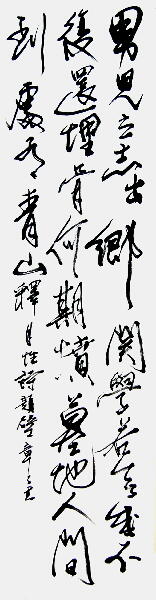 男児立志出鄉関學若無成不
復還埋骨何期墳墓地人間
到處有青山釋月性詩題壁